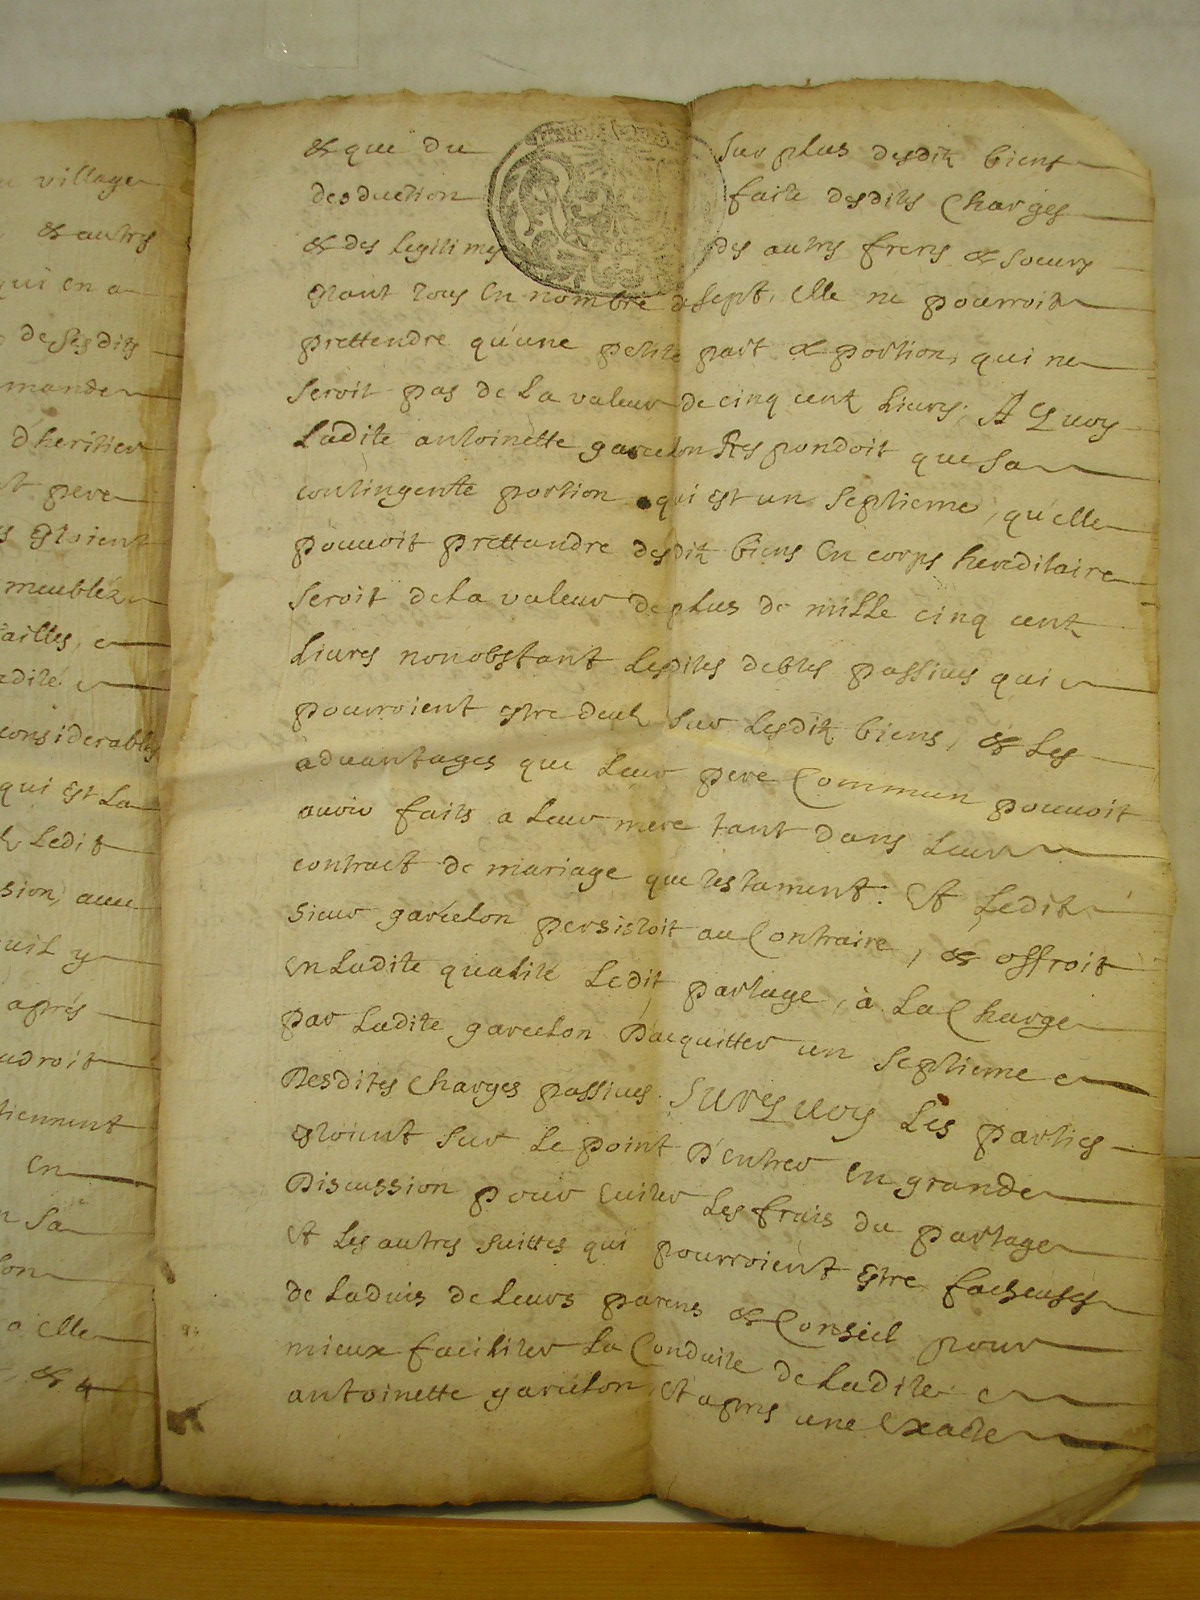 u village
& autres
qui en a
de sesdits
mande
d'heritier
t pere
s estoient
meublez
ailles,
edite
considerables
qui est La
Ledit
sion, avec
uil y
aprés
udroit
tiennent
en
n sa
lon
a elle
&
& que du surplus desdits biens
deduction faite desdites Charges
& des Legitimes des autres freres & soeurs
estant tous en nombre de sept, elle ne pourroit
prettendre qu'une petite part & portion, qui ne
seroit pas de La valeur de cinq cent Livres. A Quoy
Ladite antoinette garcelon Respondoit que sa
contingente portion qui est un septieme, qu'elle
pouvoit prettandre desdits biens en corps hereditaire
seroit de La valeur de plus de mille cinq cent
Livres nonobstant Lesdites debtes passives qui
pourroient estre deub sur Lesdits biens, & Les
advantages que Leur pere Commun pouvoit
avoir faits a Leur mere tant dans Leur
contract de mariage que testament. Et Ledit
sieur garcelon persistoit au Contraire, & offroit
en Ladite qualité Ledit partage, à La Charge
par Ladite garcelon D'acquitter un septieme
Desdites Charges passives. Sur Quoy Les parties
estoient sur Le point D'entrer en grande
Discussion pour eviter Les frais du partage
Et Les autres suittes qui pourroient estre facheuses
de Ladvis de Leurs parens & Conseil pour
mieux faciliter La Conduite de Ladite
antoinette garcelon, Et apres une Exacte